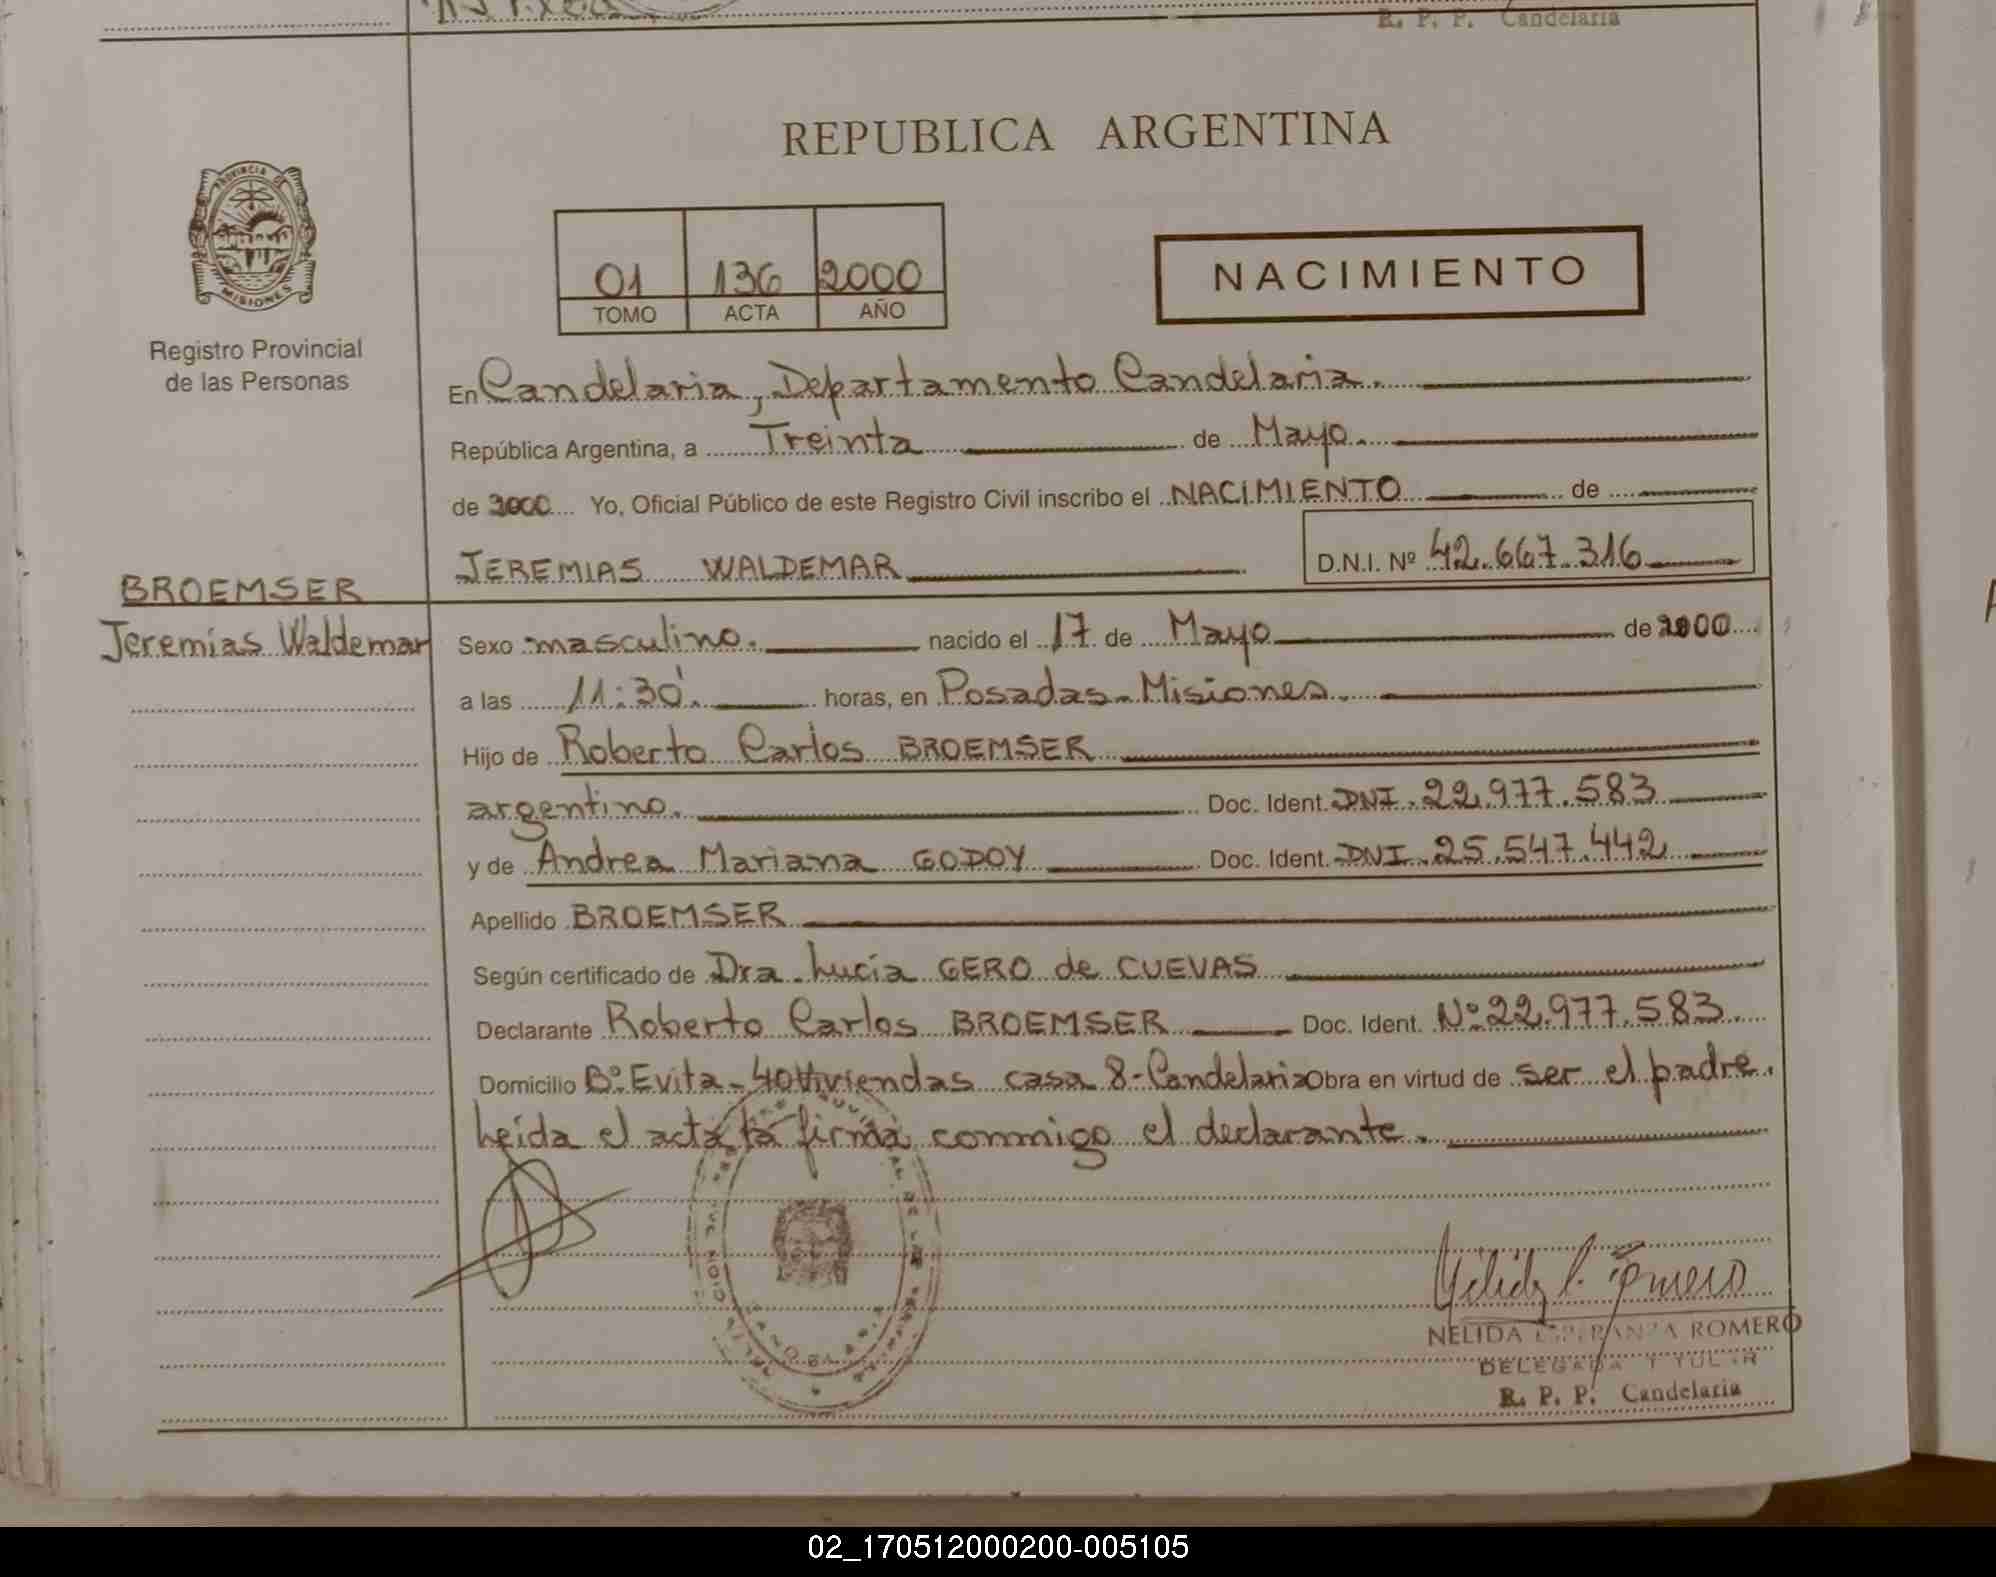 R. P. P. Candelaria
REPUBLICA ARGENTINA
PROVINCIA DE
MISIONES
Registro Provincial
de las Personas
01 136 2000
TOMO ACTA AÑO
NACIMIENTO
En Candelaria, Departamento Candelaria.
República Argentina, a Treinta de Mayo.
de 2000 Yo, Oficial Público de este Registro Civil inscribo el NACIMIENTO de
JEREMIAS WALDEMAR D.N.I. Nº 42.667.316
BROEMSER
Jeremías Waldemar
Sexo masculino. nacido el 17 de Mayo de 2000
a las 11:30'. horas, en Posadas-Misiones.
Hijo de Roberto Carlos BROEMSER
argentino. Doc. Ident. DNI. 22.977.583
y de Andrea Mariana GODOY Doc. Ident. DNI. 25.547.442
Apellido BROEMSER
Según certificado de Dra. Lucía GERO de CUEVAS
Declarante Roberto Carlos BROEMSER Doc. Ident. Nº 22.977.583.
Domicilio Bº Evita-40 Viviendas casa 8-Candelaria Obra en virtud de ser el padre.
Leída el acta la firma conmigo el declarante.
NELIDA ESPERANZA ROMERO
DELEGADA TITULAR
R. P. P. Candelaria
02_170512000200-005105